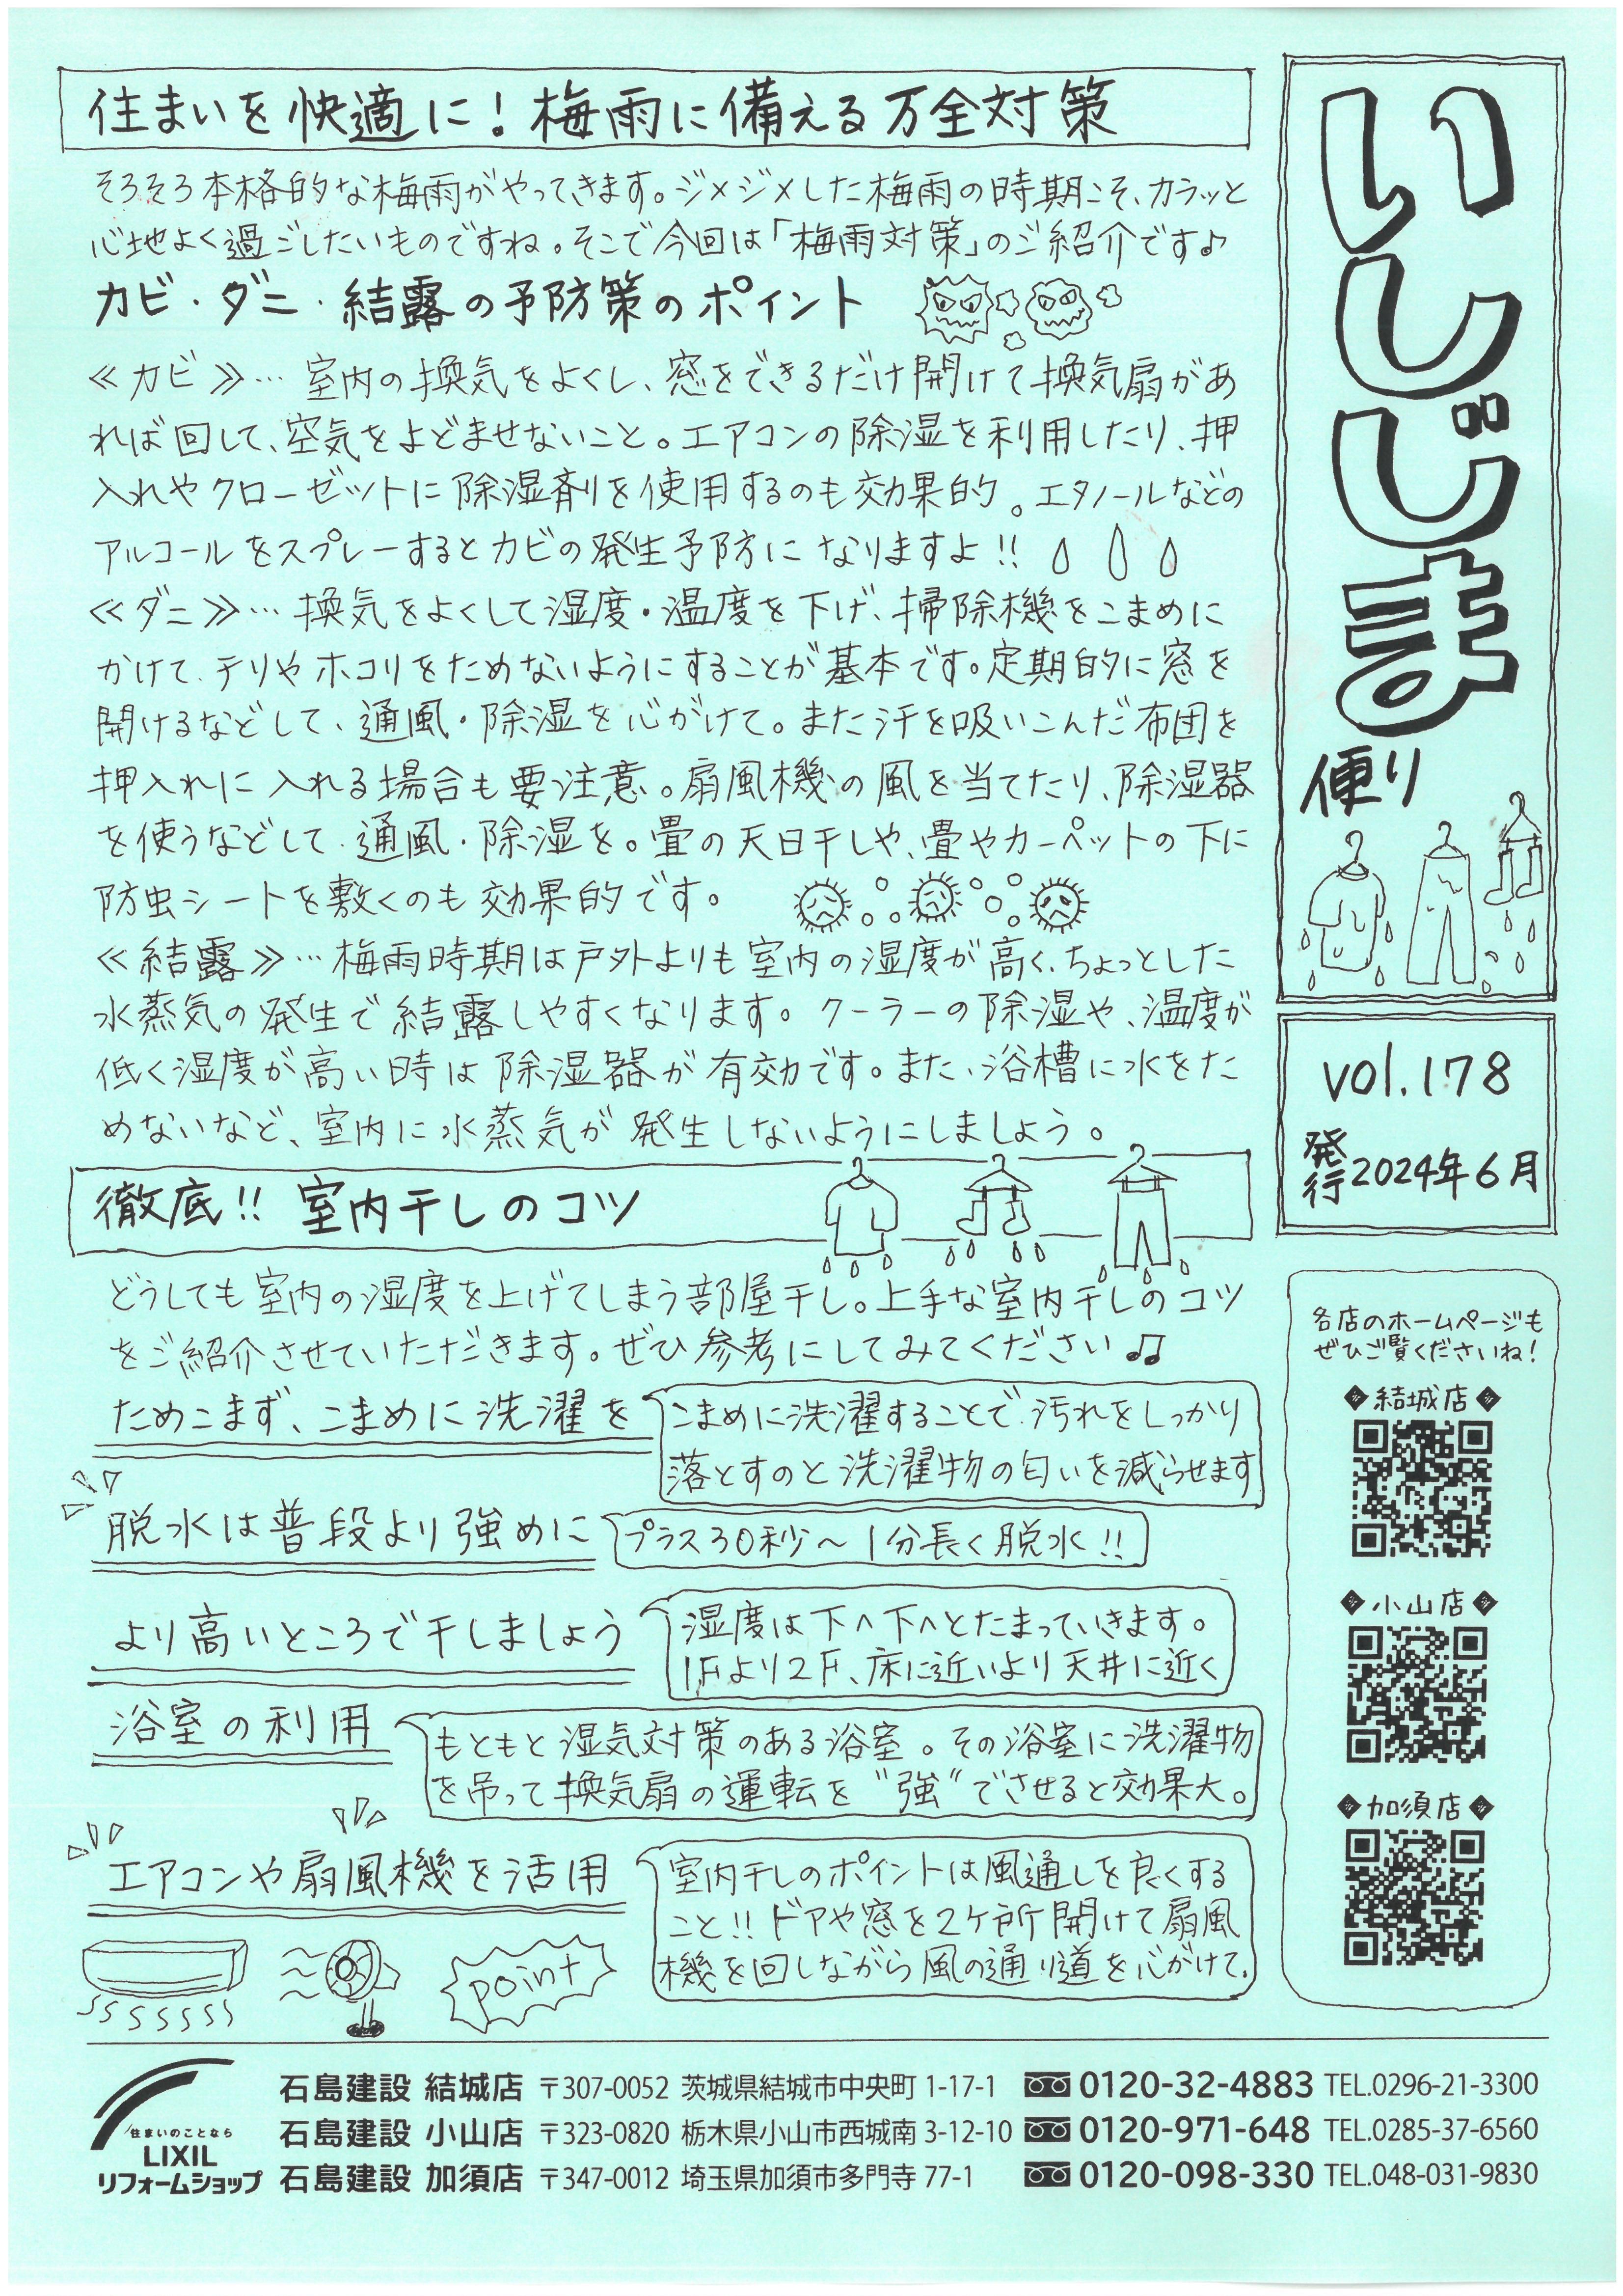 住まいを快適に!梅雨に備える万全対策
そろそろ本格的な梅雨がやってきます。ジメジメした梅雨の時期こそ、カラッと
心地よく過ごしたいものですね。そこで今回は「梅雨対策」のご紹介です♪
カビ・ダニ・結露の予防策のポイント
≪カビ≫…室内の換気をよくし、窓をできるだけ開けて換気扇があ
れば回して、空気をよどませないこと。エアコンの除湿を利用したり、押
入れやクローゼットに除湿剤を使用するのも効果的。エタノールなどの
アルコールをスプレーするとカビの発生予防になりますよ!!
≪ダニ≫…換気をよくして湿度・温度を下げ、掃除機をこまめに
かけて、チリやホコリをためないようにすることが基本です。定期的に窓を
開けるなどして、通風・除湿を心がけて。また汗を吸いこんだ布団を
押入れに入れる場合も要注意。扇風機の風を当てたり、除湿器
を使うなどして、通風・除湿を。畳の天日干しや、畳やカーペットの下に
防虫シートを敷くのも効果的です。
≪結露≫…梅雨時期は戸外よりも室内の湿度が高く、ちょっとした
水蒸気の発生で結露しやすくなります。クーラーの除湿や、温度が
低く湿度が高い時は除湿器が有効です。また、浴槽に水をた
めないなど、室内に水蒸気が発生しないようにしましょう。
徹底!!室内干しのコツ
どうしても室内の湿度を上げてしまう部屋干し。上手な室内干しのコツ
をご紹介させていただきます。ぜひ参考にしてみてください♫
ためこまず、こまめに洗濯を
こまめに洗濯することで、汚れをしっかり
落とすのと洗濯物の匂いを減らせます
脱水は普段より強めに
プラス30秒~1分長く脱水!!
より高いところで干しましょう
湿度は下へ下へとたまっていきます。
1Fより2F、床に近いより天井に近く
浴室の利用
もともと湿気対策のある浴室。その浴室に洗濯物
を吊って換気扇の運転を"強"でさせると効果大。
エアコンや扇風機を活用
室内干しのポイントは風通しを良くする
こと!!ドアや窓を2ケ所開けて扇風
機を回しながら風の通り道を心がけて。
point
いしじま
便り
vol.178
発行2024年6月
各店のホームページも
ぜひご覧くださいね!
◆結城店◆
◆小山店◆
◆加須店◆
住まいのことなら
LIXIL
リフォームショップ
石島建設 結城店 〒307-0052 茨城県結城市中央町 1-17-1 0120-32-4883 TEL.0296-21-3300
石島建設 小山店 〒323-0820 栃木県小山市西城南 3-12-10 0120-971-648 TEL.0285-37-6560
石島建設 加須店 〒347-0012 埼玉県加須市多門寺 77-1 0120-098-330 TEL.048-031-9830